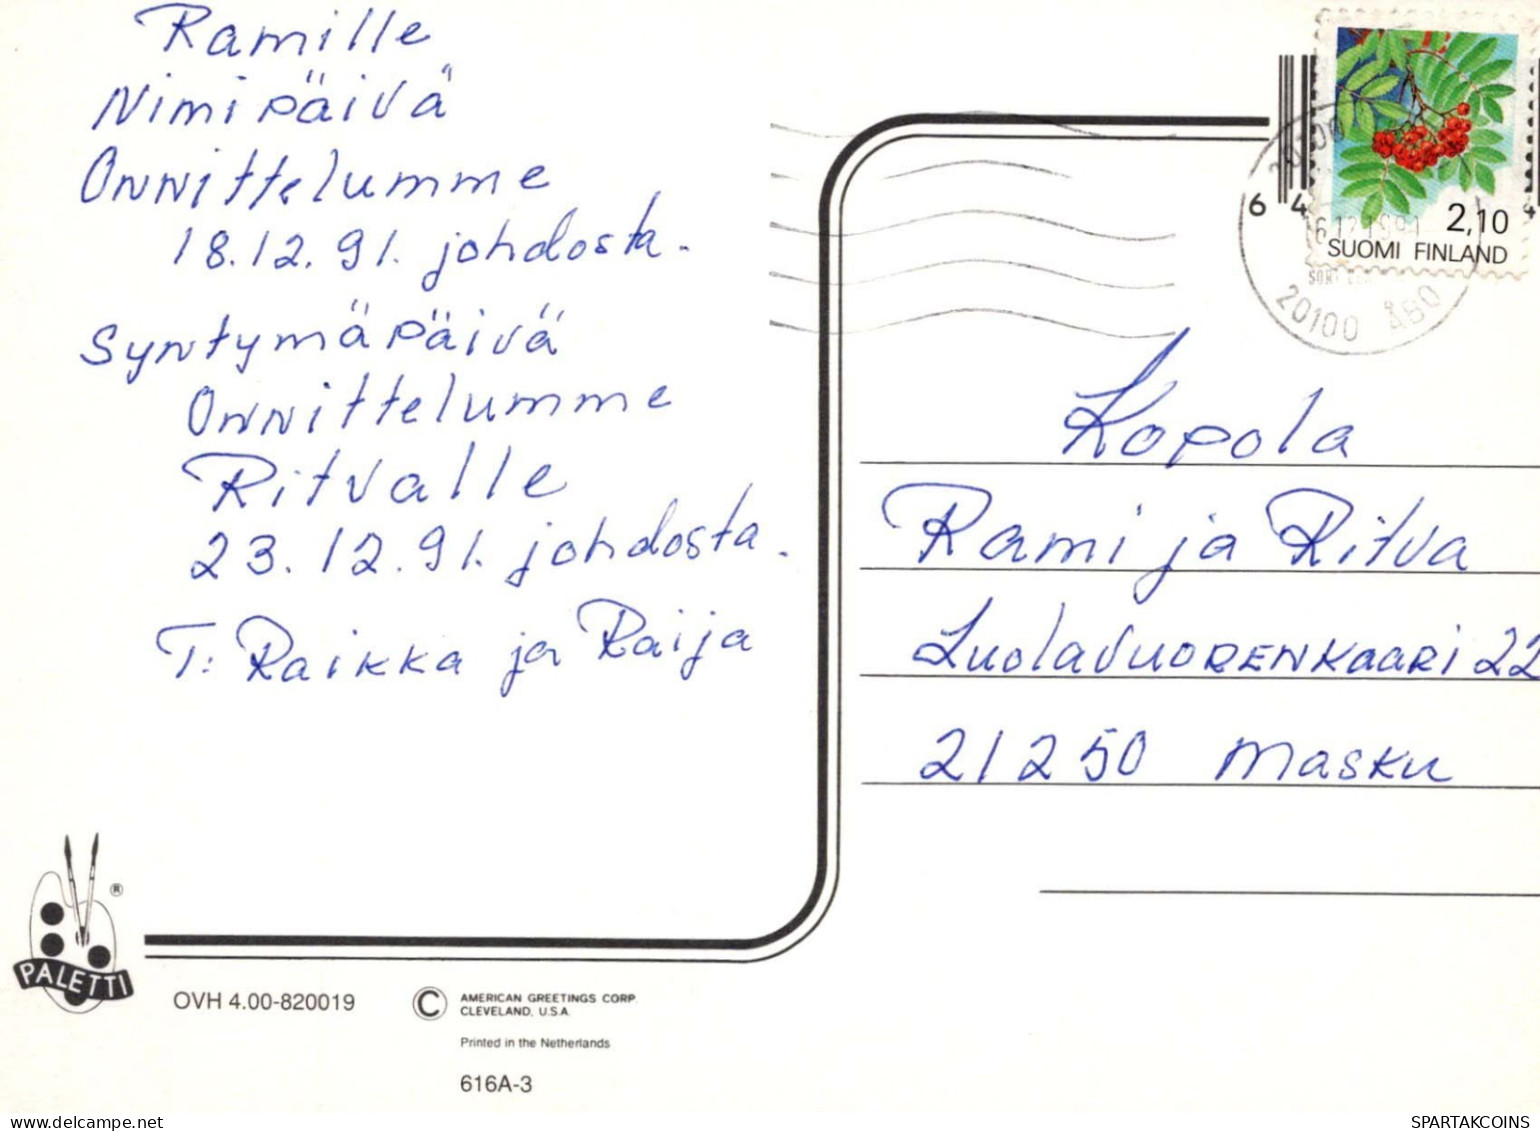 Ramille
Nimipäivä
Onnittelumme
18.12.91. johdosta.
Syntymäpäivä
Onnittelumme
Ritvalle
23.12.91. johdosta.
T: Raikka ja Raija
2,10
SUOMI FINLAND
20100 ÅBO
6 4
Kopola
Rami ja Ritva
Luolavuorenkaari 22
21250 Masku
PALETTI ®
OVH 4.00-820019
© AMERICAN GREETINGS CORP.
CLEVELAND, U.S.A.
Printed in the Netherlands
616A-3
SPARTAKCOINS